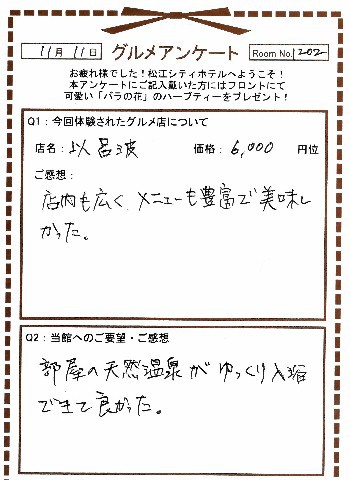 11月11日 グルメアンケート Room No. 202
お疲れ様でした！松江シティホテルへようこそ！
本アンケートにご記入戴いた方にはフロントにて
可愛い「バラの花」のハーブティーをプレゼント！
Q1：今回体験されたグルメ店について
店名：以呂波 価格：6,000 円位
ご感想：
店内も広く、メニューも豊富で美味し
かった。
Q2：当館へのご要望・ご感想
部屋の天然温泉がゆっくり入浴
できて良かった。